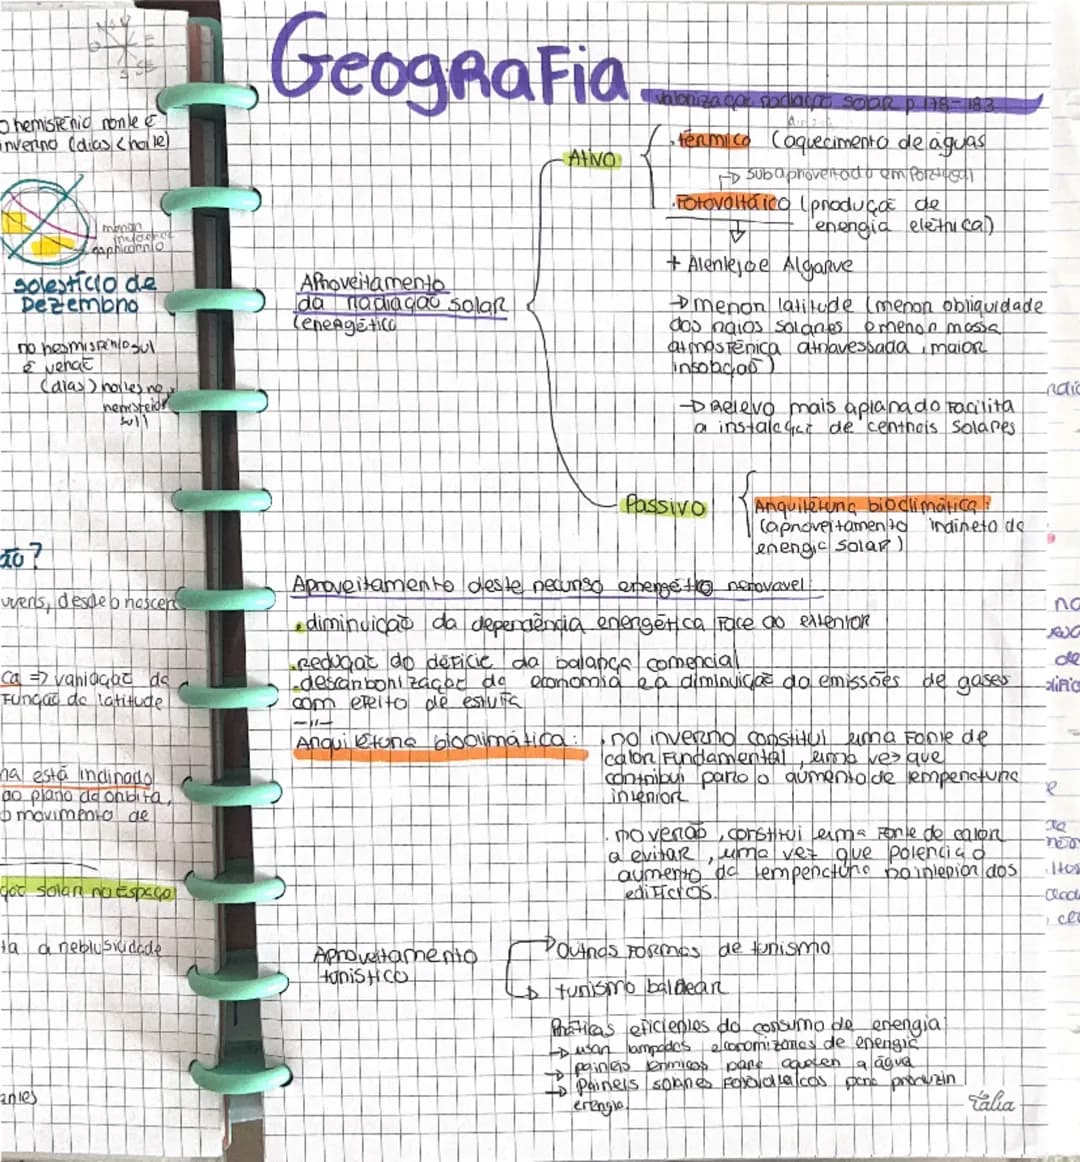 o hemisfério norte é
inverno (dias < noite)
solestício de
Dezembro
no hesmisfério sul
é verão
(dias > noites no
ão?
uvens, desde o nascer
ca => variação da
Função da latitude
na está inclinado
ao plano da órbita,
o movimento de
ção solar no Espaço
ta a neblusidade
antes
Geografia
valorização radiação solar p 178-183
Aproveitamento
da radiação solar
(energético
Ativo
. térmico (aquecimento de águas
→ subaproveitado em Portugal
. Fotovoltáico (produção de
energia elétrica)
+ Alentejo e Algarve
→ menor latitude (menor obliquidade
dos raios solares e menor massa
atmosférica atravessada, maior
insolação)
→ Relevo mais aplanado facilita
a instalação de centrais solares
Passivo
Arquitetura bioclimática:
(aproveitamento indireto da
energia solar)
Aproveitamento deste recurso energético renovavel:
. diminuição da dependência energética face ao exterior
. redução do déficie da balança comercial
. descarbonização da economia e a diminuição da emissões de gases
com efeito de estufa
-//-
Arquitetura bioclimática:
. no inverno constitui uma fonte de
calor fundamental, uma vez que
contribui para o aumento de temperatura
interior
. no verão, constitui uma fonte de calor
a evitar, uma vez que potencia o
aumento da temperatura no interior dos
edifícios.
Aproveitamento
turístico
→ Outras formas de turismo
→ turismo balnear
Práticas eficientes do consumo de energia
→ usar lampadas economizoras de energia
→ paineis térmicos para aquecer a água
→ Paineis solares fotovoltaicos para produzir
energia.
Tália